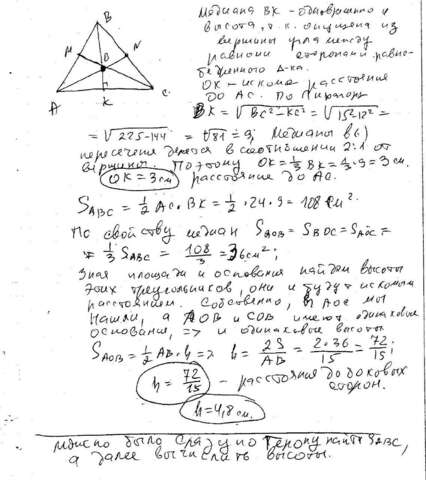 B
M
N
O
A
K
C
Медиана BK - одновременно и
высота, т.к. опущена из
вершины угла между
равными сторонами равно-
бедренного Δ-ка.
OK - искомое расстояние
до AC. По Пифагору
BK = √BC²-KC² = √15²-12² =
= √225-144 = √81 = 9; Медианы в (·)
пересечения делятся в соотношении 2:1 от
вершины. Поэтому OK = 1/3 BK = 1/3 · 9 = 3 см.
OK = 3 см расстояние до AC.
S ABC = 1/2 AC · BK = 1/2 · 24 · 9 = 108 см².
По свойству медиан S AOB = S BOC = S AOC =
= 1/3 S ABC = 108/3 = 36 см²;
Зная площади и основания найдем высоты
этих треугольников, они и будут искомым
расстоянием. Собственно, h AOC мы
нашли, а AOB и COB имеют одинаковое
основание, => и одинаковые высоты
S AOB = 1/2 AB · h => h = 2S/AB = 2·36/15 = 72/15;
h = 72/15 - расстояния до боковых
сторон.
h = 4,8 см.
Можно было сразу по Герону найти S ABC,
а далее вычислить высоты.